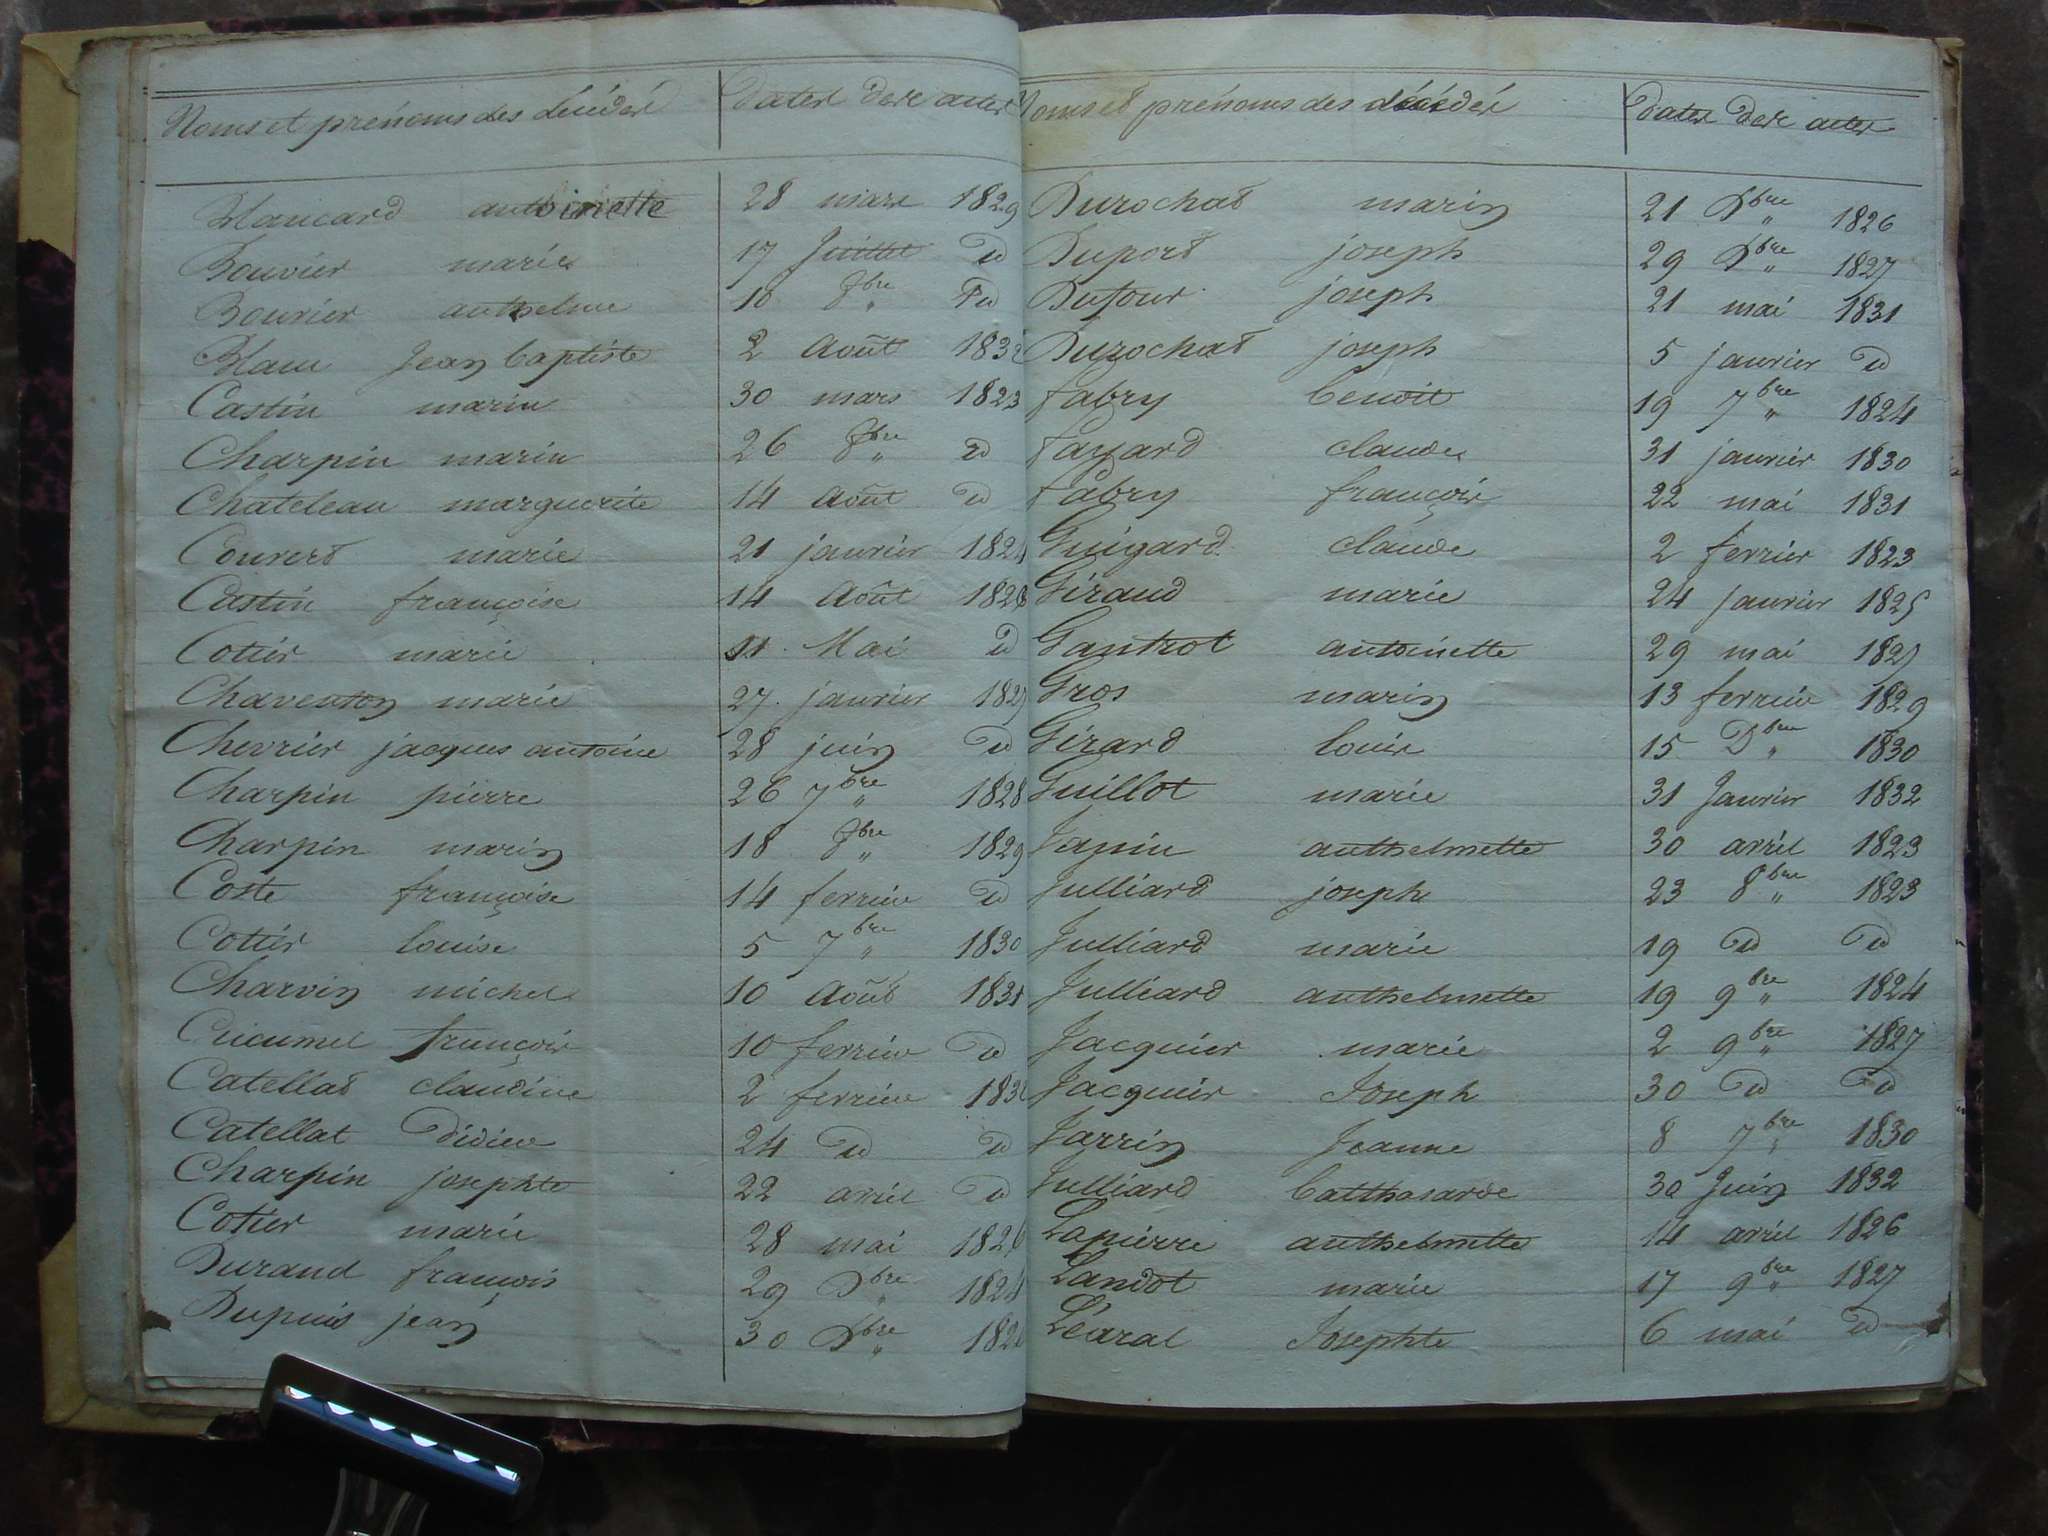 Noms et prénoms des décédés Dates des actes
Blancard antoinette 28 mars 1829
Bouvier marie 17 Juillet d
Bouvier anthelme 10 8bre d
Blanc Jean baptiste 2 Août 1832
Castin marin 30 mars 1823
Charpin marin 26 8bre d
Chateleau marguerite 14 Août d
Couvert marie 21 janvier 1824
Castin françoise 14 Août 1826
Cottier marie 11 Mai d
Chaventon marie 27 janvier 1827
Chevrier jacques antoine 28 juin d
Charpin pierre 26 7bre 1828
Charpin marin 18 8bre 1829
Coste françoise 14 fevrier d
Cottier louise 5 7bre 1830
Charvin michel 10 Août 1831
françois 10 fevrier d
Catellat claudine 2 fevrier
Catellat Didier 24 d d
Charpin josephte 22 avril d
Cotier marie 28 mai 1826
Durand françois 29 Dbre 1824
Dupuis jean 30 Dbre
Noms et prénoms des décédés Dates des actes
Durochat marin 21 Dbre 1826
Duport joseph 29 Dbre 1827
Dufour joseph 21 mai 1831
Durochat joseph 5 janvier d
fabry benoit 19 7bre 1824
fayard claude 31 janvier 1830
fabry françois 22 mai 1831
Guigard claude 2 fevrier 1823
Giraud marie 24 janvier 1825
Gantrot antoinette 29 mai 1825
Gros marin 13 fevrier 1829
Girard louis 15 Dbre 1830
Guillot marie 31 Janvier 1832
Janin anthelmette 30 avril 1823
Julliard joseph 23 8bre 1823
Julliard marie 19 d d
Julliard anthelmette 19 9bre 1824
Jacquier marie 2 9bre 1827
Jacquier Joseph 30 d d
Jarrin Jeanne 8 7bre 1830
Julliard balthasarde 30 Juin 1832
Lapierre anthelmette 14 avril 1826
Landot marie 17 9bre 1827
Léaral Josephte 6 mai d